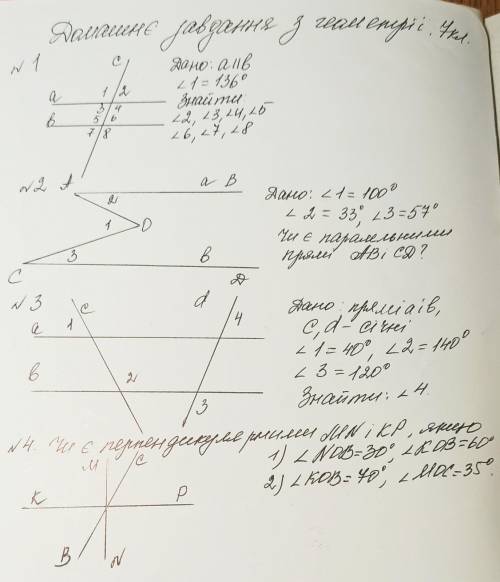 Домашнє завдання з геометрії. 7кл.
№1
Дано: a||b
∠1=136°
Знайти:
∠2, ∠3, ∠4, ∠5
∠6, ∠7, ∠8
C
a
b
1 2
3 4
5 6
7 8
№2
A
a B
2
1 O
3
C
b
D
Дано: ∠1=100°
∠2=33°, ∠3=57°
Чи є паралельними
прямі AB і CD?
№3
C
d
a 1
4
b
2
3
Дано: прямі a і b,
c, d – січні
∠1=40°, ∠2=140°
∠3=120°
Знайти: ∠4.
№4. Чи є перпендикулярними MN і KP, якщо
1) ∠NOB=30°, ∠KOB=60°
2) ∠KOB=70°, ∠MOC=35°.
M
C
K
P
B
N